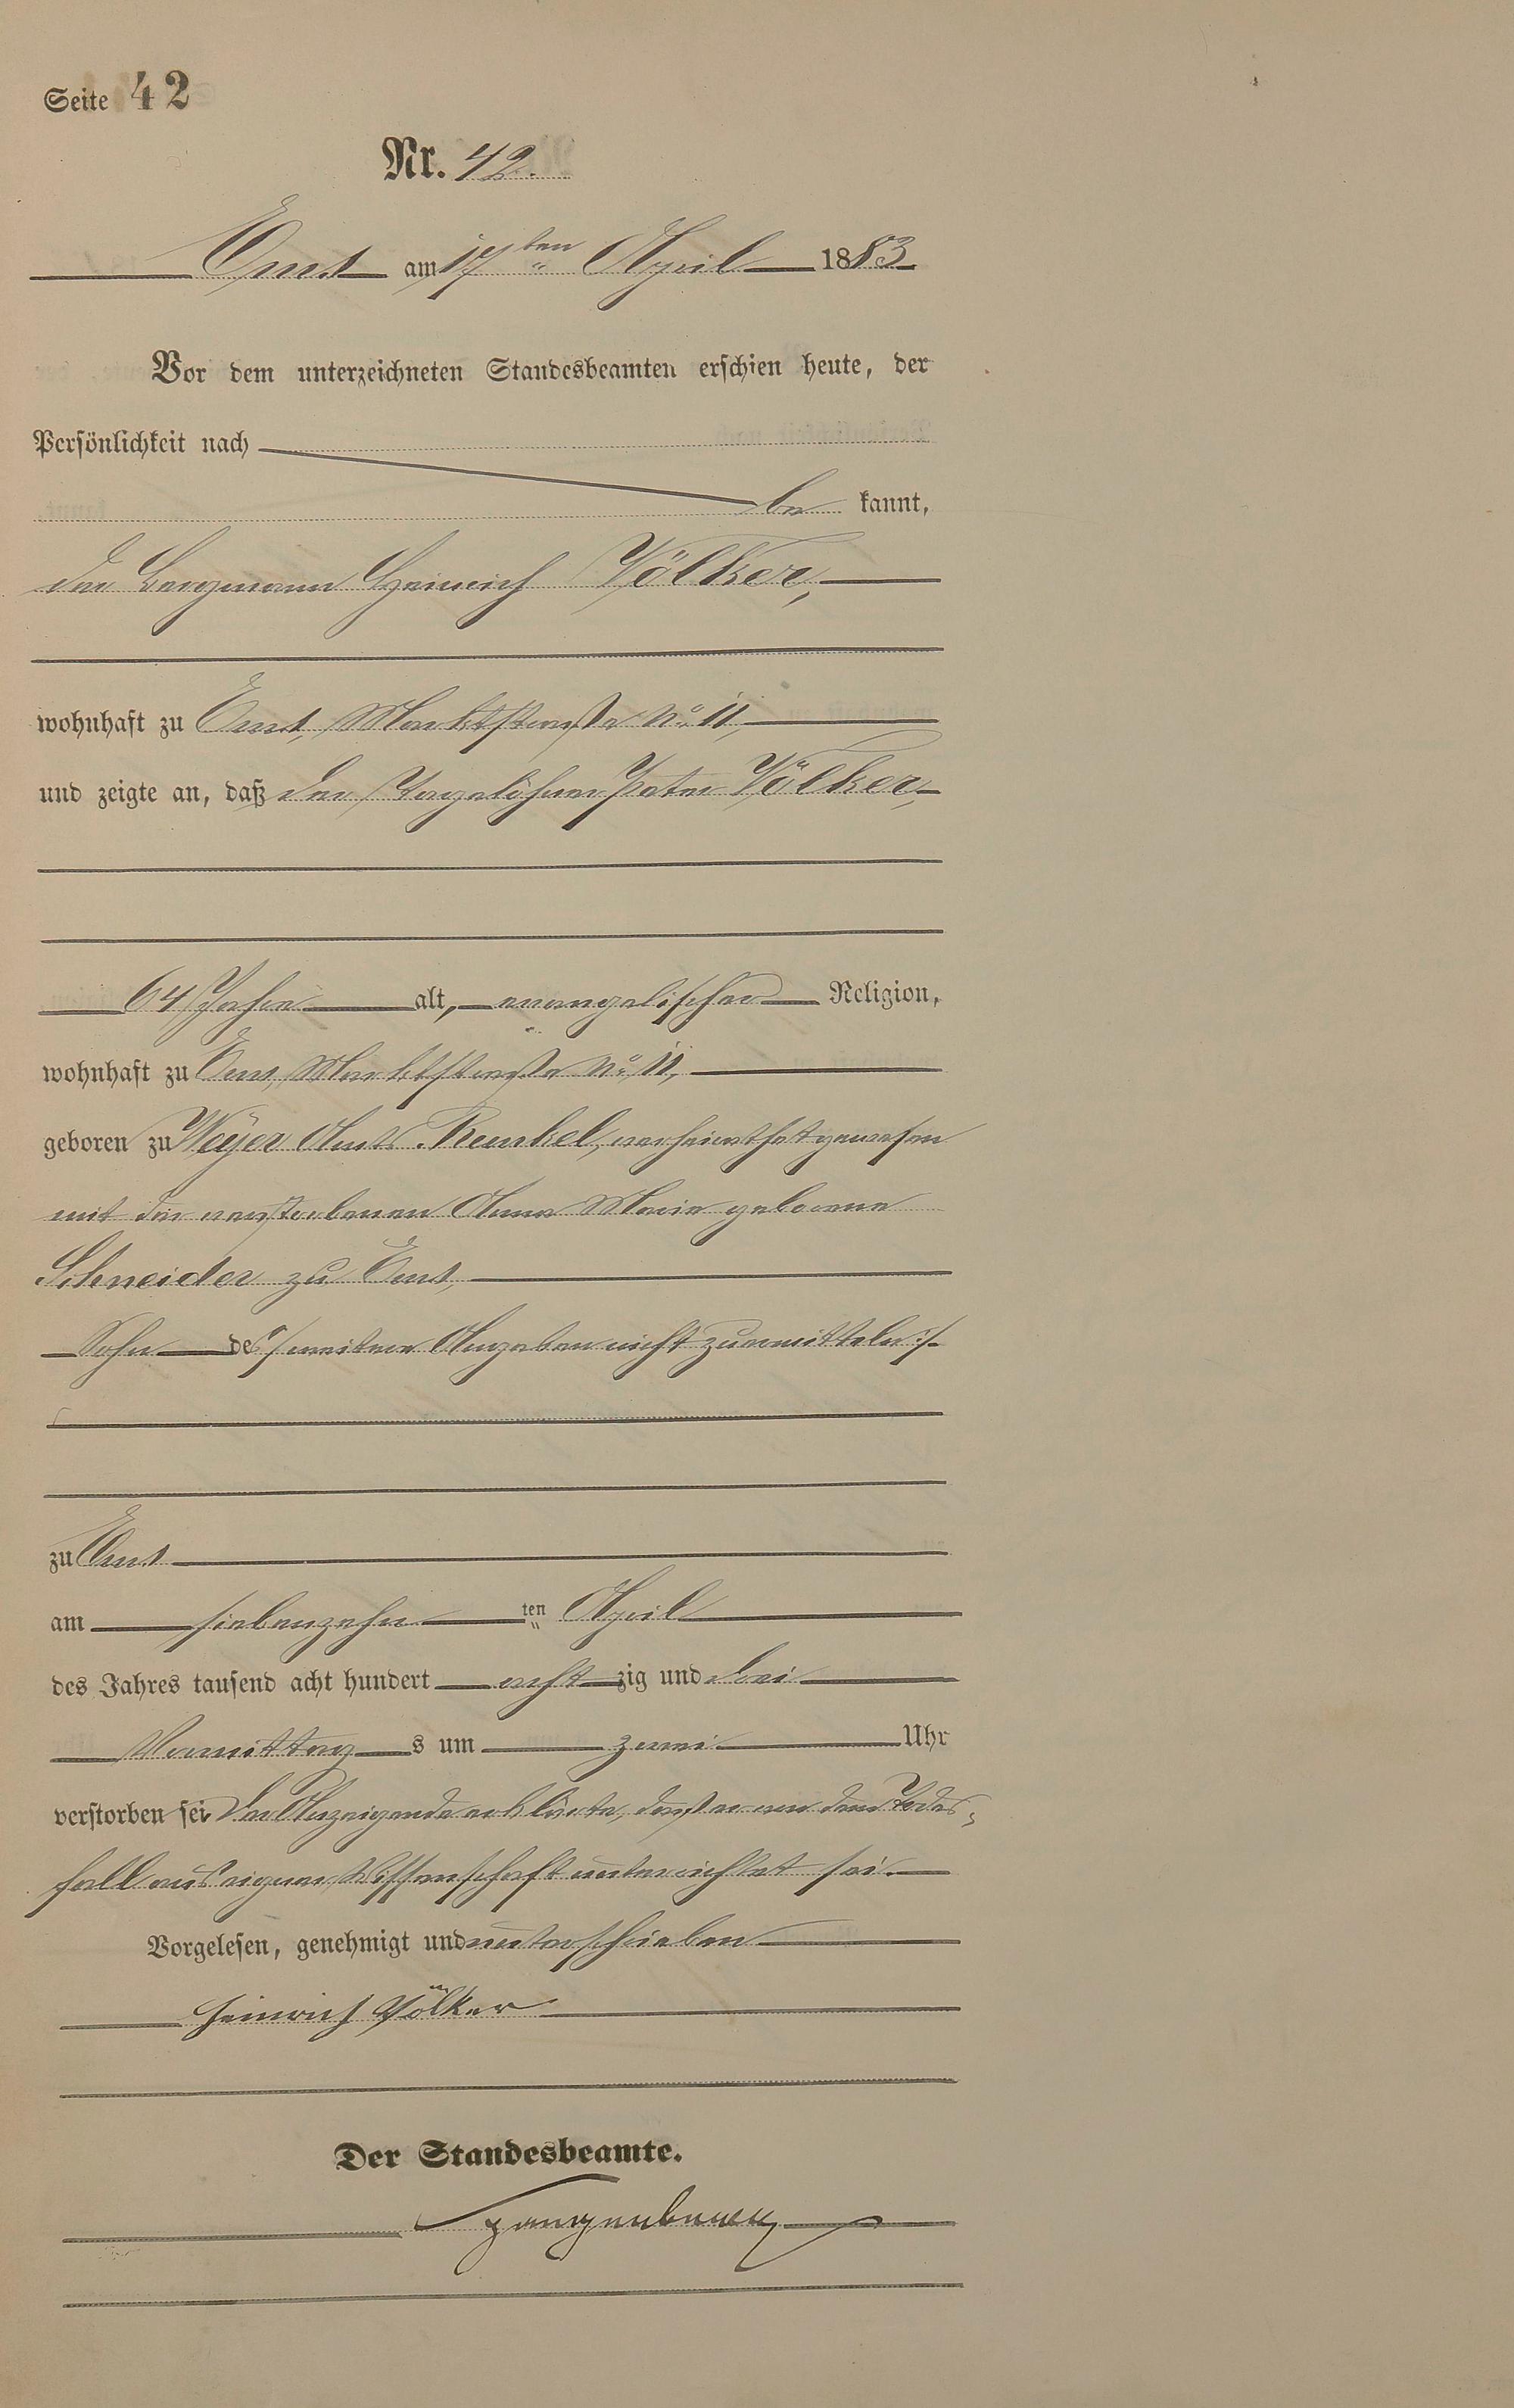 Seite 42
Nr. 42.
Ems am 17ten April 1883
Vor dem unterzeichneten Standesbeamten erschien heute, der
Persönlichkeit nach
be kannt,
der Bergmann Heinrich Völker,
wohnhaft zu Ems, Marktstraße No 11,
und zeigte an, daß der Tagelöhner Peter Völker,
64 Jahre alt, evangelischer Religion,
wohnhaft zu Ems, Marktstraße No 11,
geboren zu Weyer Amts Runkel, verheirathet gewesen
mit der verstorbenen Anna Maria geborene
Schneider zu Ems,
Sohn des /: weitere Angaben nicht zu ermitteln :/
zu Ems
am siebenzehn ten April
des Jahres tausend acht hundert acht zig und drei
Vormittag s um zwei Uhr
verstorben sei. Der Anzeigende erklärte, daß er von dem Todes-
fall aus eigner Wissenschaft unterrichtet sei.
Vorgelesen, genehmigt und unterschrieben
Heinrich Völker
Der Standesbeamte.